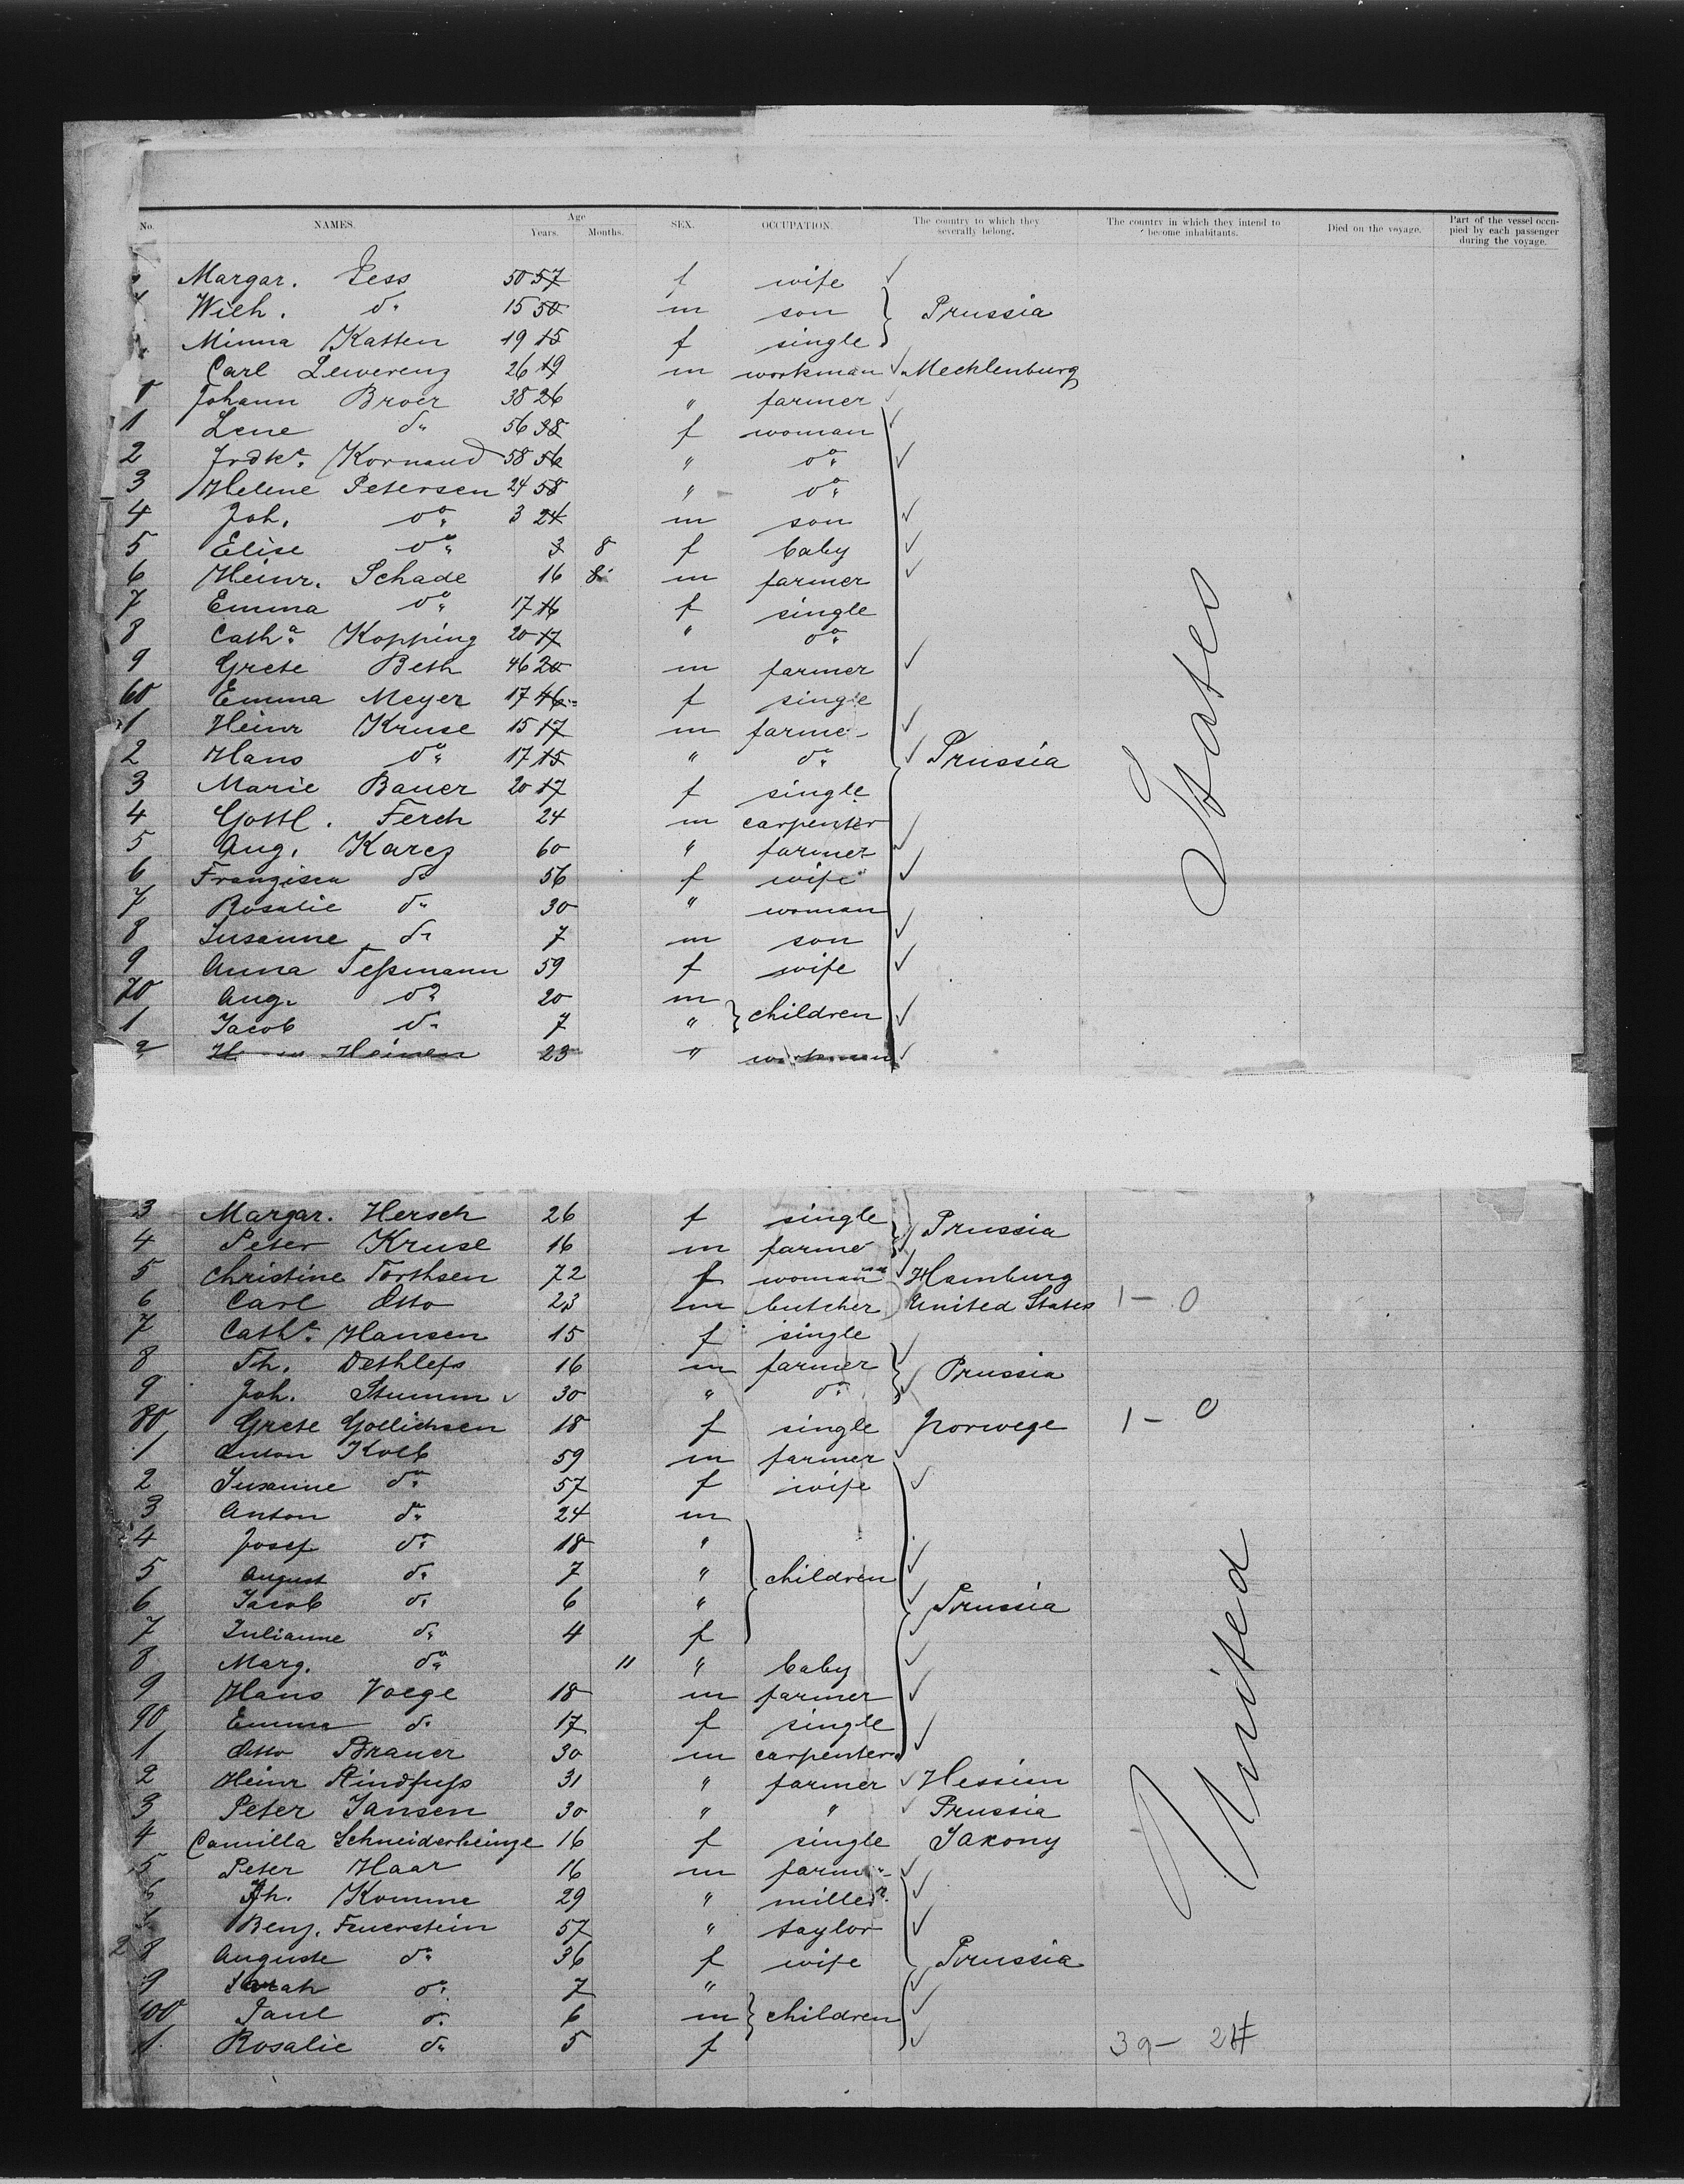 No. NAMES. Age Years. Months. SEX. OCCUPATION. The country to which they severally belong. The country in which they intend to become inhabitants. Died on the voyage. Part of the vessel occupied by each passenger during the voyage.
Margar. Jess 50 57 f wife
Wilh. do 15 50 m son Prussia
Minna Katten 19 15 f single
Carl Lewerenz 26 19 m workman Mecklenburg
Johann Broer 38 26 " farmer
1 Lene do 56 38 f woman
2 Frdke. Kornand 58 56 " do
3 Helene Petersen 24 58 " do
4 Joh. do 3 24 m son
5 Elise do 3 8 f baby
6 Heinr. Schade 16 8 m farmer
7 Emma do 17 16 f single
8 Cath. Kopping 20 17 " do
9 Grete Beth 46 20 m farmer
60 Emma Meyer 17 46 f single
1 Heinr Kruse 15 17 m farme
2 Hans do 17 15 " do Prussia
3 Marie Bauer 20 17 f single
4 Gottl. Ferch 24 m carpenter
5 Aug. Karcz 60 " farmer
6 Franzisca do 56 f wife
7 Rosalie do 30 " woman
8 Susanne do 7 m son
9 Anna Teßmann 59 f wife
70 Aug. do 20 m children
1 Jacob do 7 "
2 Heinen 23 " workman
3 Margar. Hersch 26 f single Prussia
4 Peter Kruse 16 m farme
5 Christine Torthsen 72 f woman Hamburg
6 Carl Otto 23 m butcher United States 1 - 0
7 Cathe. Hansen 15 f single
8 Th. Dethlefs 16 m farmer Prussia
9 Joh. Stumm 30 " do
80 Grete Gollichsen 18 f single Norwege 1 - 0
1 Anton Kolb 59 m farmer
2 Susanne do 57 f wife
3 Anton do 24 m
4 Josef do 18 "
5 August do 7 " children
6 Jacob do 6 " Prussia
7 Julianne do 4 f
8 Marg. do 11 " baby
9 Hans Voege 18 m farmer
90 Emma do 17 f single
1 Otto Brauer 30 m carpenter
2 Heinr Rindfuß 31 " farmer Hessien
3 Peter Jansen 30 " " Prussia
4 Camilla Schneiderheinze 16 f single Saxony
5 Peter Haar 16 m farm
6 Jh. Komme 29 " miller
Benj. Feuerstein 57 " taylor
8 Auguste do 36 f wife Prussia
9 Sarah do 7 "
100 Paul do 6 m children
1 Rosalie do 5 f
39 - 24
United States